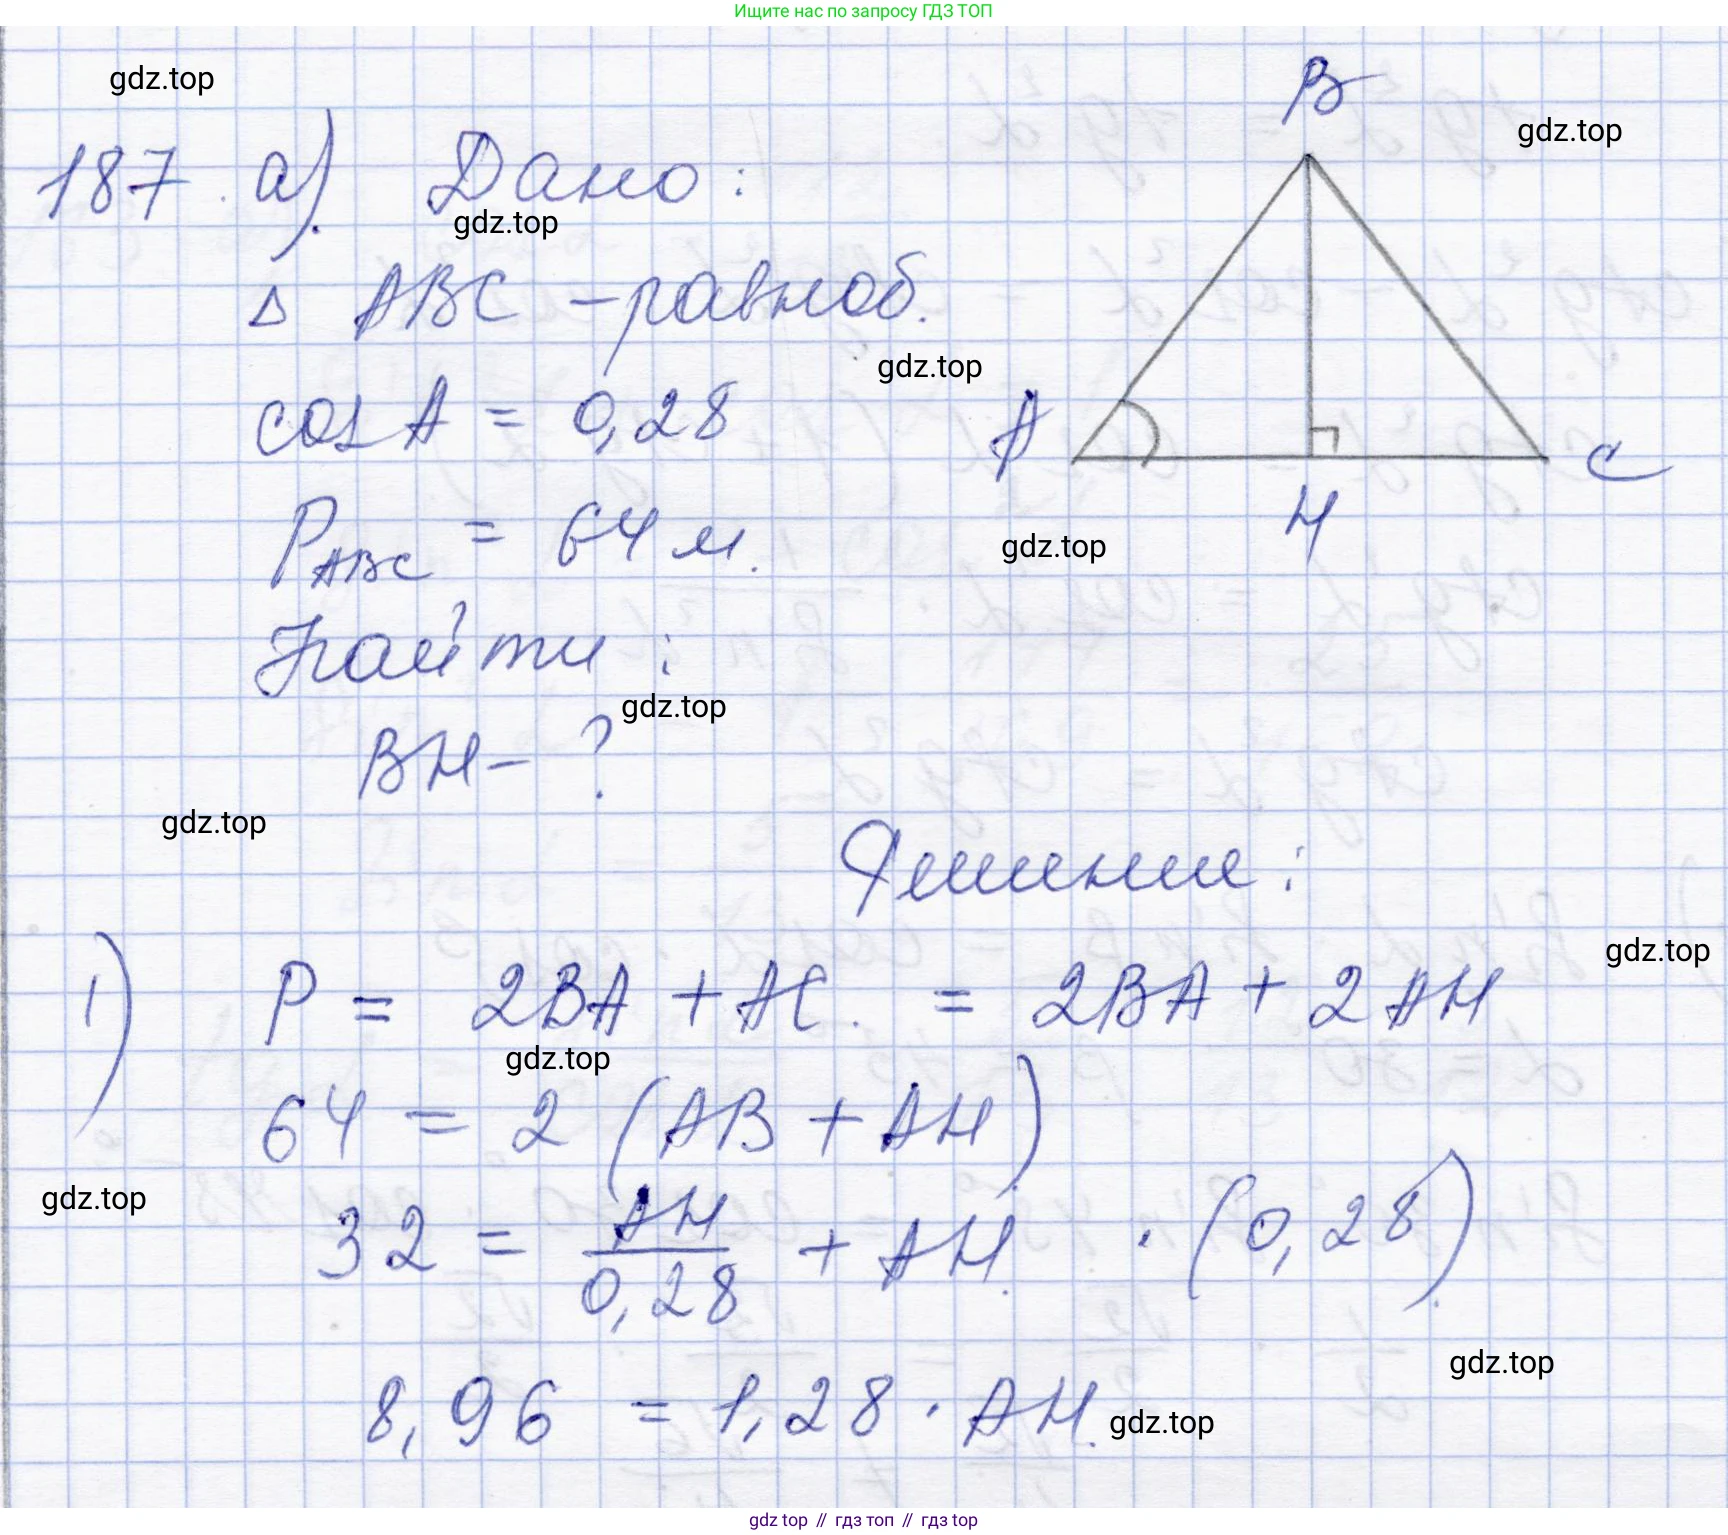 Ищите нас по запросу ГДЗ ТОП
gdz.top
B
gdz.top
187 а). Дано:
gdz.top
Δ ABC – равноб.
gdz.top
cos A = 0,28
A
C
H
P ABC = 64 м.
gdz.top
Найти:
gdz.top
BH – ?
gdz.top
Решение:
gdz.top
1) P = 2BA + AC. = 2BA + 2AH
gdz.top
64 = 2 (AB + AH)
gdz.top
32 = AH/0,28 + AH. · (0,28)
gdz.top
8,96 = 1,28 · AH.
gdz.top
gdz top // гдз топ // гдз top